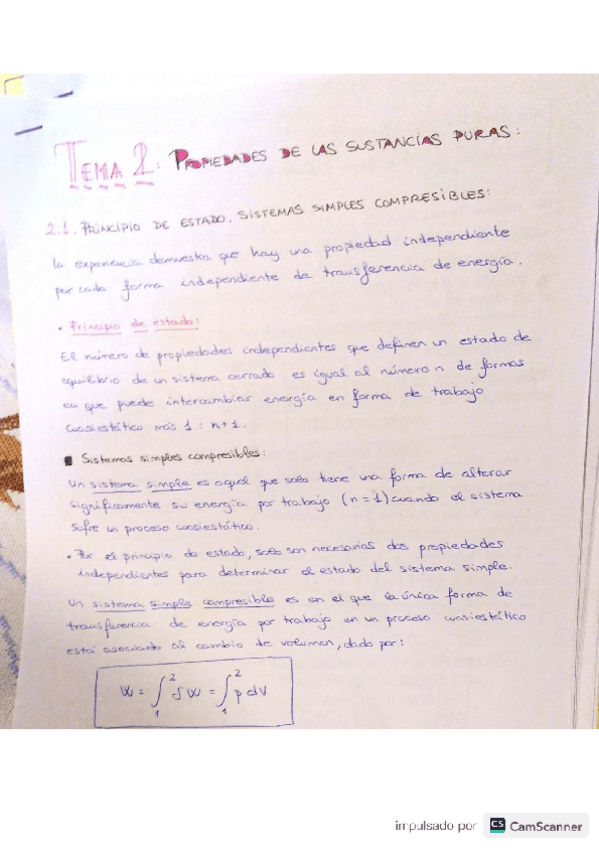 TEMA 2: PROPIEDADES DE LAS SUSTANCIAS PURAS:
2.1. PRINCIPIO DE ESTADO. SISTEMAS SIMPLES COMPRESIBLES:
La experiencia demuestra que hay una propiedad independiente
por cada forma independiente de transferencia de energía.
• Principio de estado:
El número de propiedades independientes que definen un estado de
equilibrio de un sistema cerrado es igual al número n de formas
en que puede intercambiar energía en forma de trabajo
cuasiestático más 1: n+1.
Sistemas simples compresibles:
Un sistema simple es aquel que solo tiene una forma de alterar
significamente su energía por trabajo (n=1) cuando el sistema
sufre un proceso cuasiestático.
• Por el principio de estado, solo son necesarias dos propiedades
independientes para determinar el estado del sistema simple.
Un sistema simple compresible es en el que la única forma de
transferencia de energía por trabajo en un proceso cuasiestático
está asociado al cambio de volumen, dado por:
W = ∫₁² δW = ∫₁² p dV
impulsado por CS CamScanner